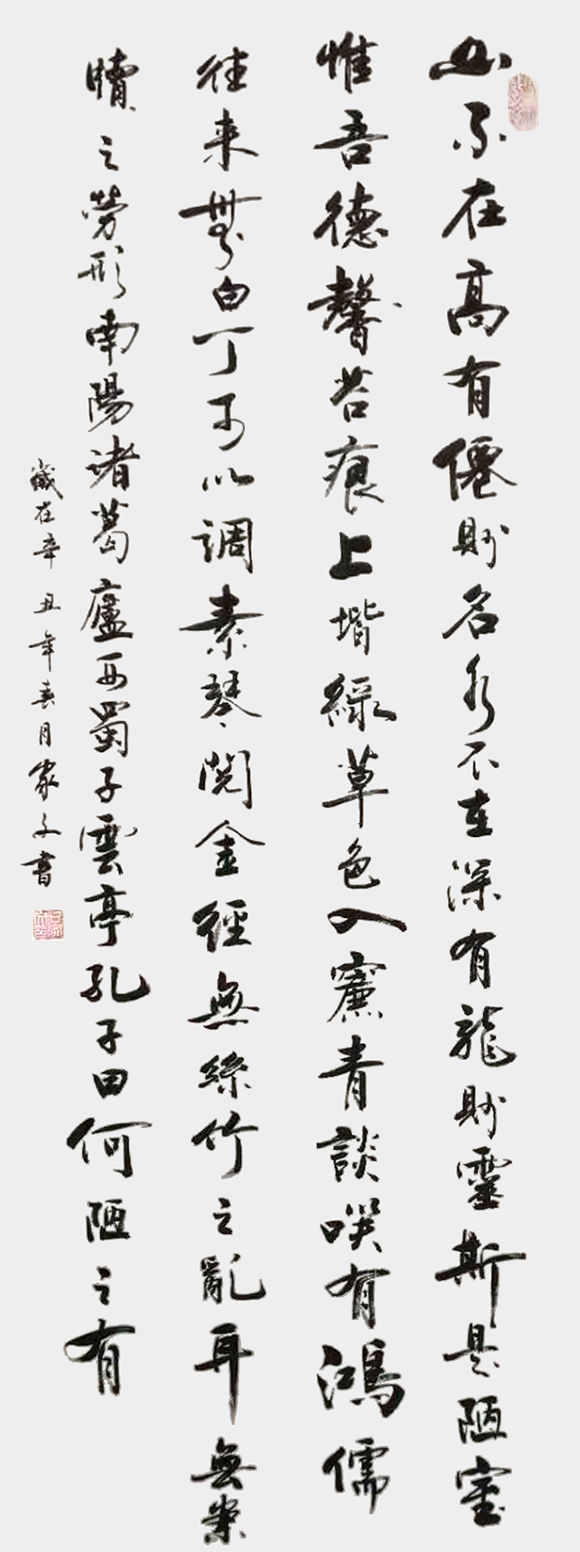 山不在高有僊則名水不在深有龍則靈斯是陋室
惟吾德馨苔痕上堦綠草色入簾青談咲有鴻儒
往来無白丁可以調素琴閱金經無絲竹之亂耳無案
牘之勞形南陽諸葛廬西蜀子雲亭孔子曰何陋之有
歲在辛丑年春月家書